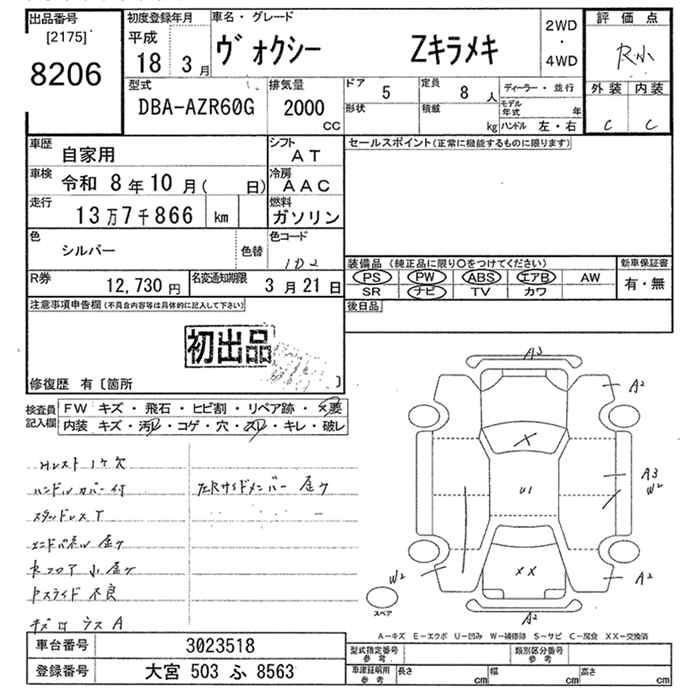 出品番号 初度登録年月 車名・グレード 2WD・4WD 評価点
[2175] 平成 ヴォクシー Zキラメキ R小
8206 18 3月 外装 内装
C C
型式 排気量 ドア 5 定員 8人 ディーラー・並行
DBA-AZR60G 2000 CC 形状 積載 kg モデル年式 年
ハンドル 左・右
車歴 自家用 シフト AT セールスポイント(正常に機能するものに限ります)
車検 令和 8年10月( 日) 冷房 AAC
走行 13万7千866 km 燃料 ガソリン
色 シルバー 色替 色コード 1D2
装備品 (純正品に限り○をつけてください) 新車保証書
PS PW ABS エアB AW 有・無
SR ナビ TV カワ
R券 12,730円 名変通知期限 3月21日
後日品
注意事項申告欄(不具合内容等は具体的に記入して下さい)
初出品
修復歴 有〔箇所 〕
検査員記入欄 FW キズ・飛石・ヒビ割・リペア跡・×要
内装 キズ・汚レ・コゲ・穴・スレ・キレ・破レ
ハンドルカバー付
スタッドレスT
エンドパネル 歪ケ
不良
A3
A2
X
A3
W2
U1
XX
W2
A2
A2
スペア
A-キズ E-エクボ U-凹み W-補修跡 S-サビ C-腐食 XX-交換済
車台番号 3023518
型式指定番号 参考 類別区分番号 参考
登録番号 大宮 503 ふ 8563
車庫証明用 参考 長さ cm 幅 cm 高さ cm